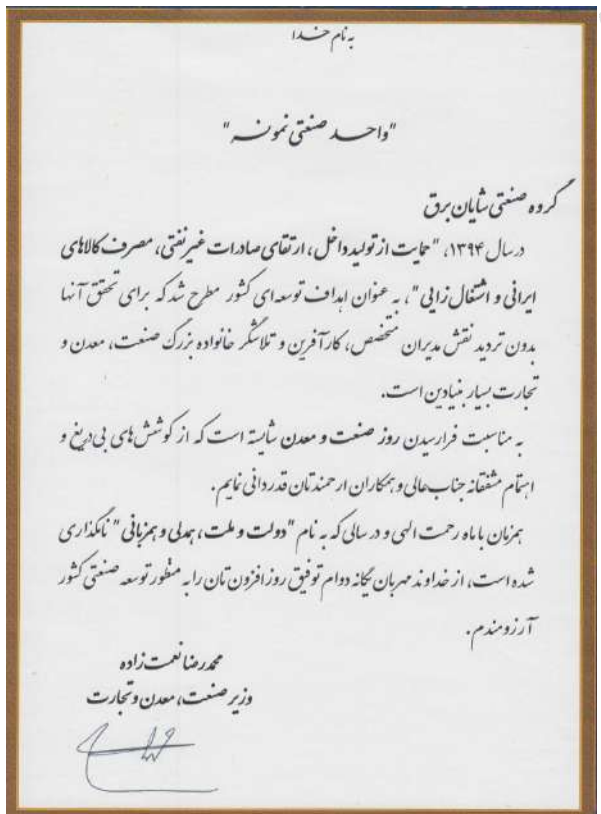 به نام خدا
"واحد صنعتی نمونه"
گروه صنعتی شایان برق
در سال ۱۳۹۴، "حمایت از تولید داخل، ارتقای صادرات غیرنفتی، مصرف کالاهای
ایرانی و اشتغال زایی"، به عنوان اهداف توسعه ای کشور مطرح شد که برای تحقق آنها
بدون تردید نقش مدیران متخصص، کارآفرین و تلاشگر خانواده بزرگ صنعت، معدن و
تجارت بسیار بنیادین است.
به مناسبت فرارسیدن روز صنعت و معدن شایسته است که از کوشش های بی دریغ و
اهتمام مشفقانه جناب عالی و همکاران ارجمندتان قدردانی نمایم.
همزمان با ماه رحمت الهی و در سالی که به نام "دولت و ملت، همدلی و همزبانی" نامگذاری
شده است، از خداوند مهربان یگانه دوام توفیق روزافزون تان را به منظور توسعه صنعتی کشور
آرزومندم.
محمدرضا نعمت زاده
وزیر صنعت، معدن و تجارت